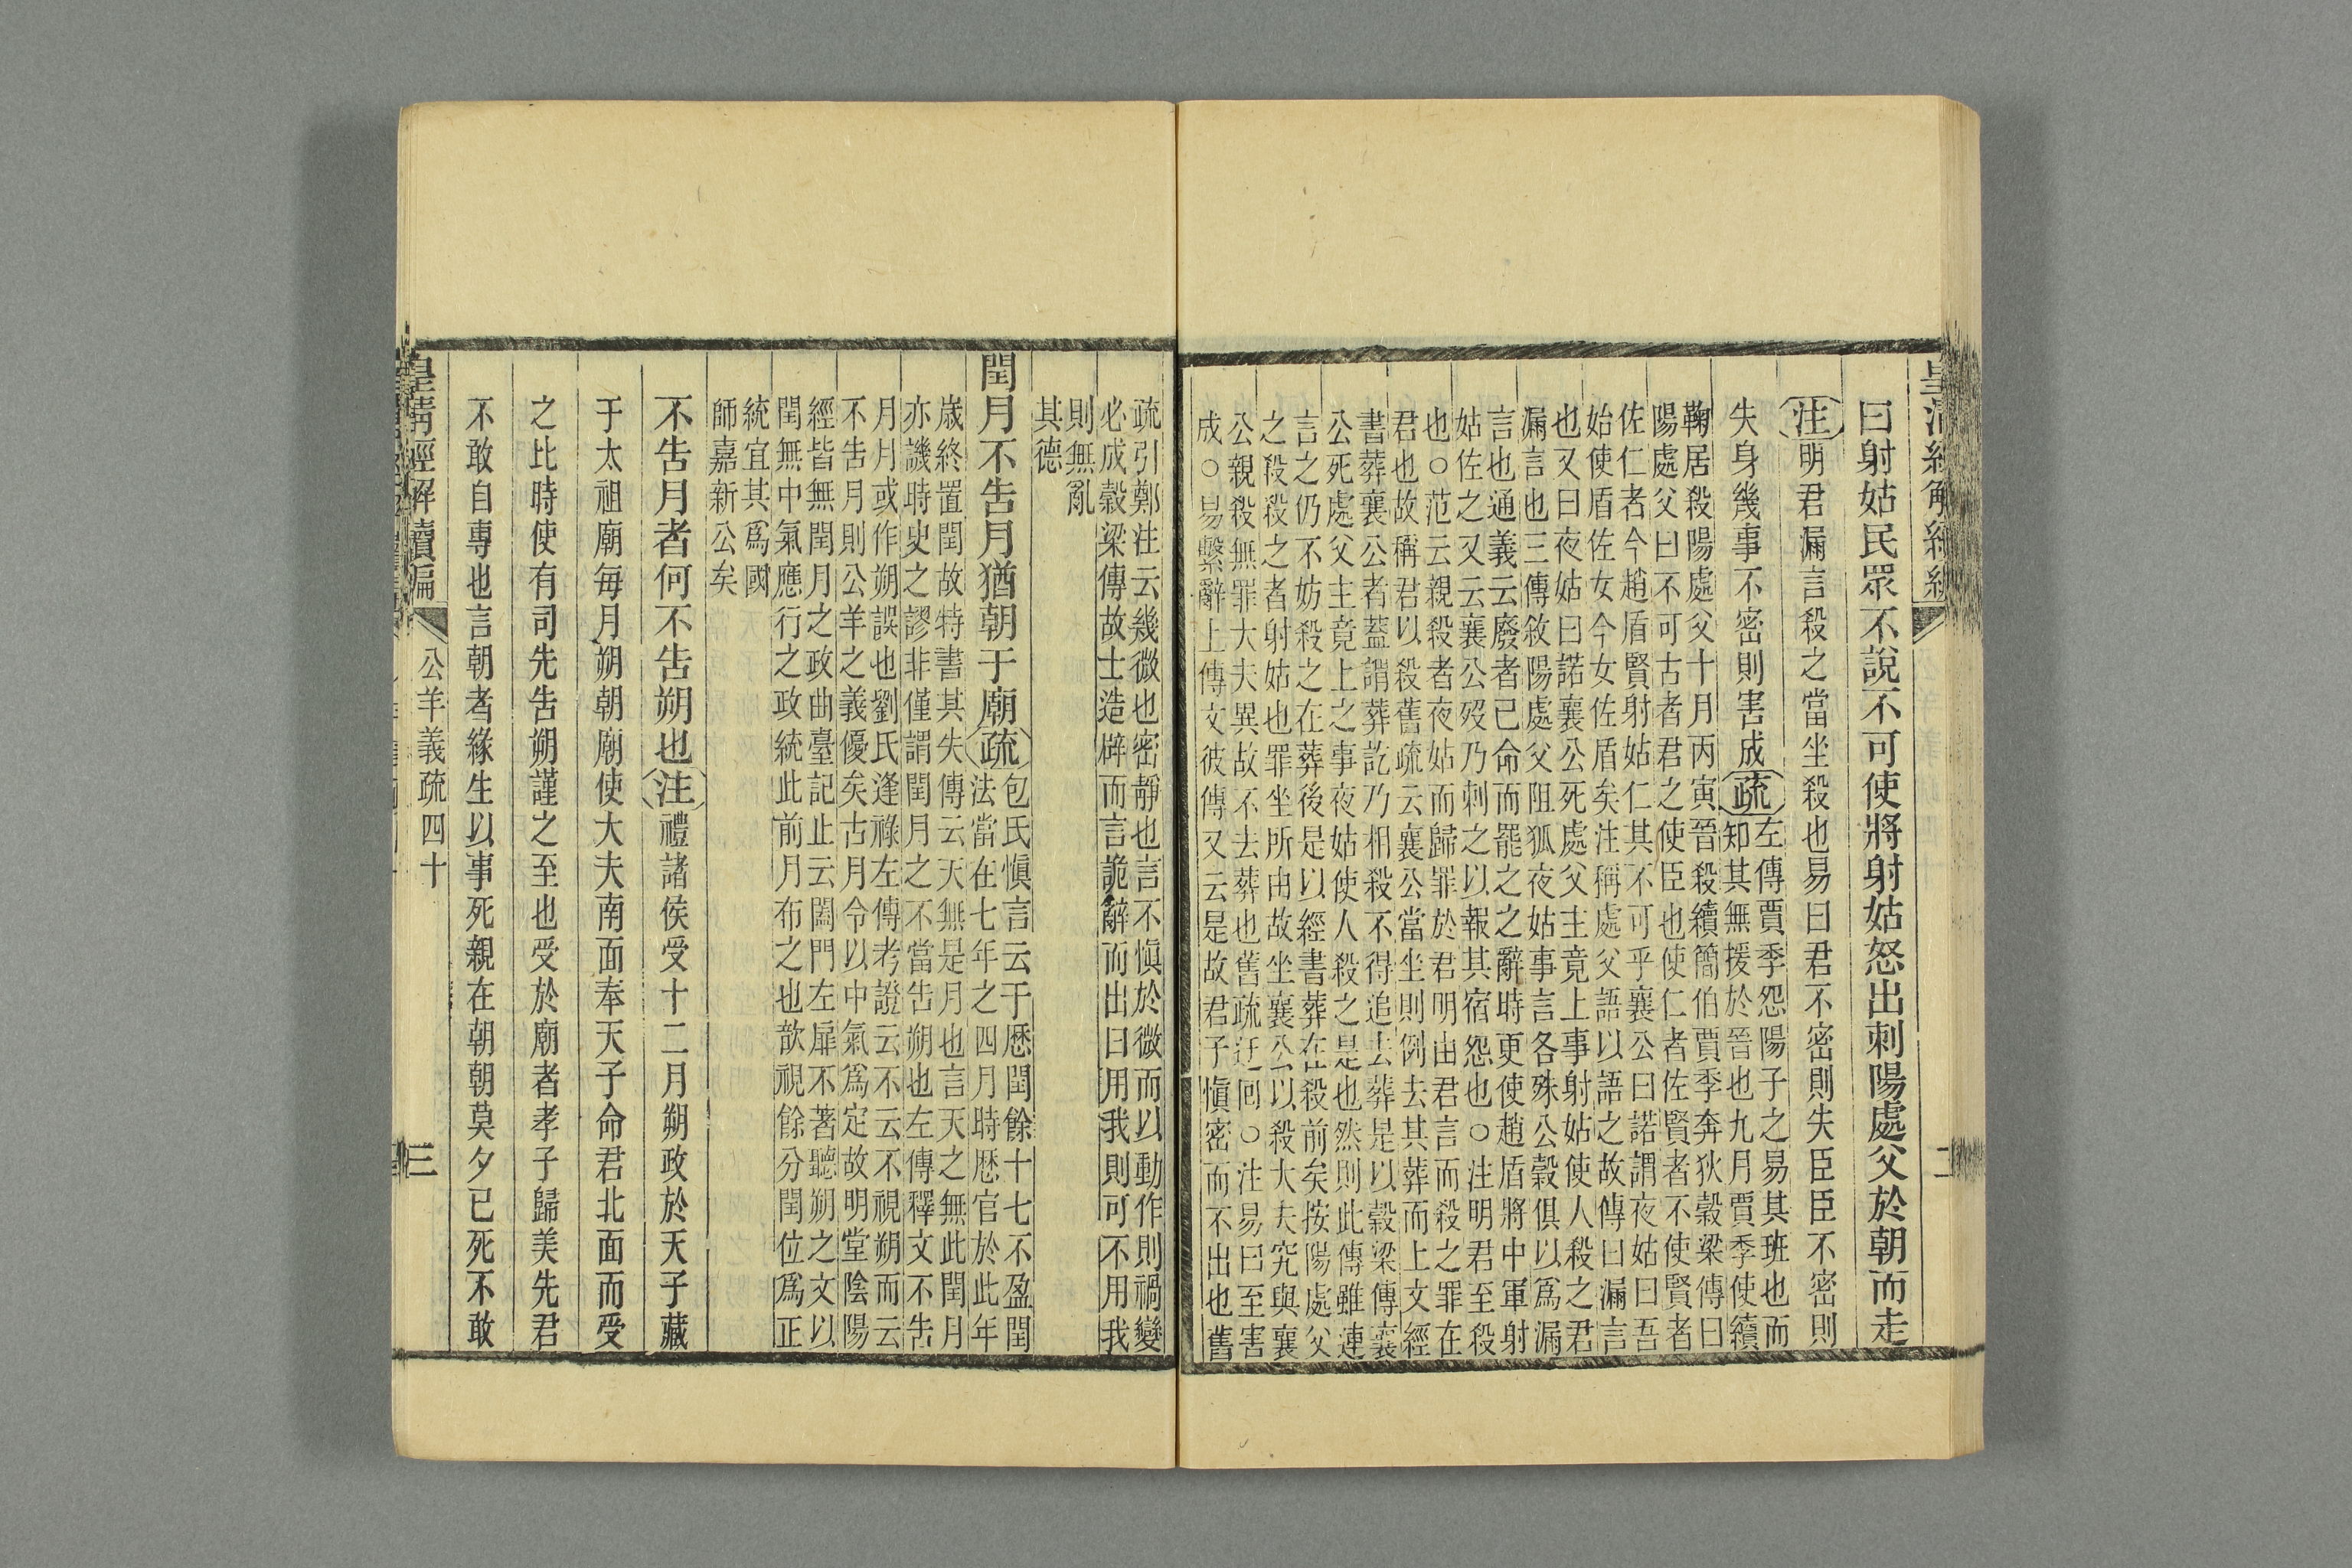 皇清經解續編
二
曰射姑民眾不說不可使將射姑怒出刺陽處父於朝而走
注明君漏言殺之當坐殺也易曰君不密則失臣臣不密則
失身幾事不密則害成疏
左傳賈季怨陽子之易其班也而
知其無援於晉也九月賈季使續
鞠居殺陽處父十月丙寅晉殺續簡伯賈季奔狄穀梁傳曰
陽處父曰不可古者君之使臣也使仁者佐賢者不使賢者
佐仁者今趙盾賢射姑仁其不可乎襄公曰諾謂夜姑曰吾
始使盾佐女今女佐盾矣注稱處父語以語之故傳曰漏言
也又曰夜姑曰諾襄公死處父主竟上事射姑使人殺之君
漏言也三傳敘陽處父阻狐夜姑事言各殊公穀俱以爲漏
言也通義云廢者已命而罷之之辭時更使趙盾將中軍射
姑佐之又云襄公歿乃刺之以報其宿怨也○注明君至殺
也○范云親殺者夜姑而歸罪於君明由君言而殺之罪在
君也故稱君以殺舊疏云襄公當坐則例去其葬而上文經
書葬襄公者蓋謂葬訖乃相殺不得追去葬是以穀梁傳襄
公死處父主竟上之事夜姑使人殺之是也然則此傳雖連
言之仍不妨殺之在葬後是以經書葬在殺前矣按陽處父
之殺殺之者射姑也罪坐所由故坐襄公以殺大夫究與襄
公親殺無罪大夫異故不去葬也舊疏迂回○注易曰至害
成○易繫辭上傳文彼傳又云是故君子愼密而不出也舊
疏引鄭注云幾微也密靜也言不愼於微而以動作則禍變
必成穀梁傳故士造辟而言詭辭而出曰用我則可不用我
則無亂
其德
閏月不告月猶朝于廟疏
包氏愼言云于厯閏餘十七不盈閏
法當在七年之四月時厯官於此年
歲終置閏故特書其失傳云天無是月也言天之無此閏月
亦譏時史之謬非僅謂閏月之不當告朔也左傳釋文不告
月月或作朔誤也劉氏逢祿左傳考證云不云不視朔而云
不告月則公羊之義優矣古月令以中氣爲定故明堂陰陽
經皆無閏月之政曲臺記止云闔門左扉不著聽朔之文以
閏無中氣應行之政統此前月布之也歆視餘分閏位爲正
統宜其爲國
師嘉新公矣
不告月者何不告朔也注禮諸侯受十二月朔政於天子藏
于太祖廟每月朔朝廟使大夫南面奉天子命君北面而受
之比時使有司先告朔謹之至也受於廟者孝子歸美先君
不敢自專也言朝者緣生以事死親在朝朝莫夕已死不敢
皇清經解續編
公羊義疏四十
三